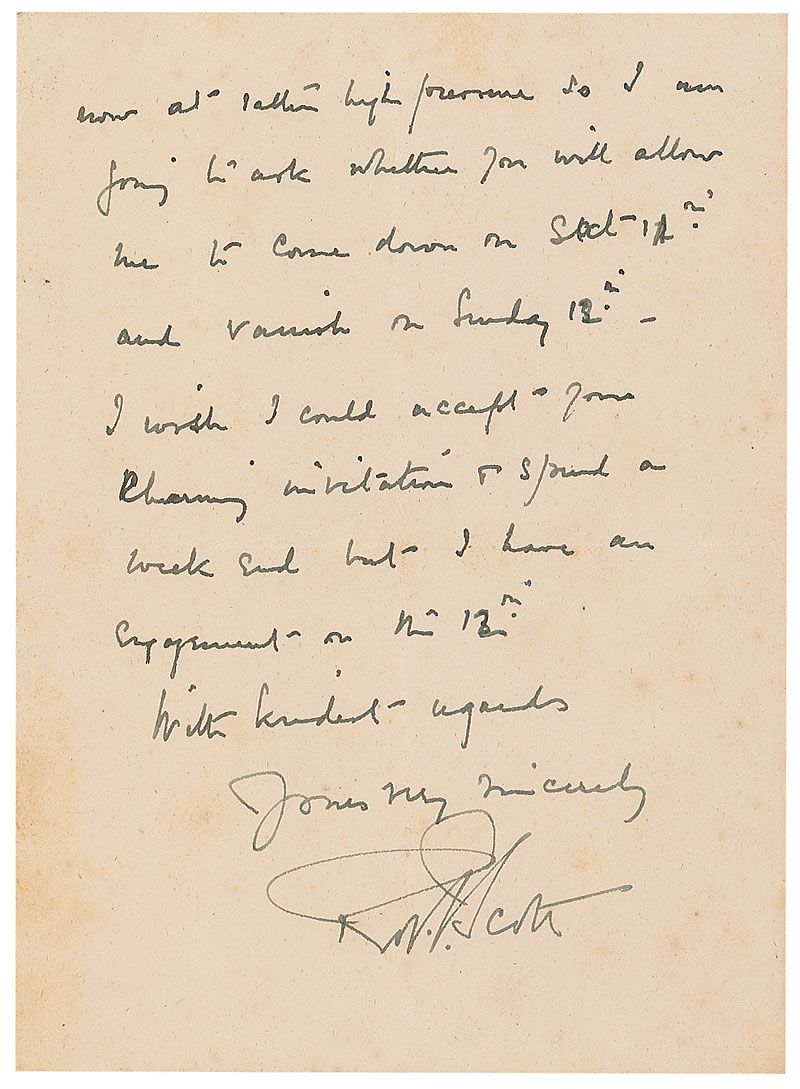 now at rather high pressure so I am
going to ask whether you will allow
me to come down on Sat
and vanish on Sunday
I wish I could accept your
charming invitation & spend a
week end but I have an
engagement on the
With kindest regards
Yours very sincerely
R Scott